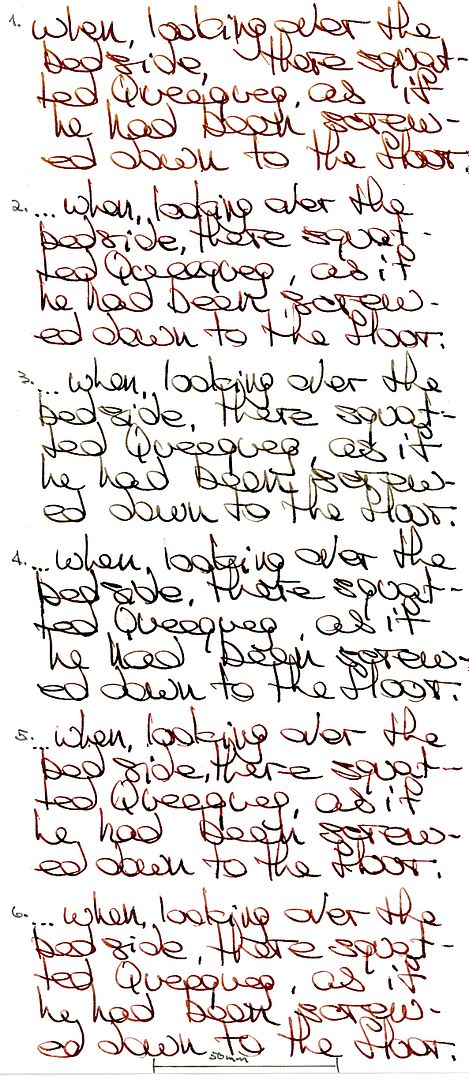 1. when, looking over the
bedside, there squat-
ted Queequeg, as if
he had been screw-
ed down to the floor.
2. ... when, looking over the
bedside, there squat-
ted Queequeg, as if
he had been screw-
ed down to the floor.
3. ... when, looking over the
bedside, there squat-
ted Queequeg, as if
he had been screw-
ed down to the floor.
4. ... when, looking over the
bedside, there squat-
ted Queequeg, as if
he had been screw-
ed down to the floor.
5. ... when, looking over the
bedside, there squat-
ted Queequeg, as if
he had been screw-
ed down to the floor.
6. ... when, looking over the
bedside, there squat-
ted Queequeg, as if
he had been screw-
ed down to the floor.
50 mm